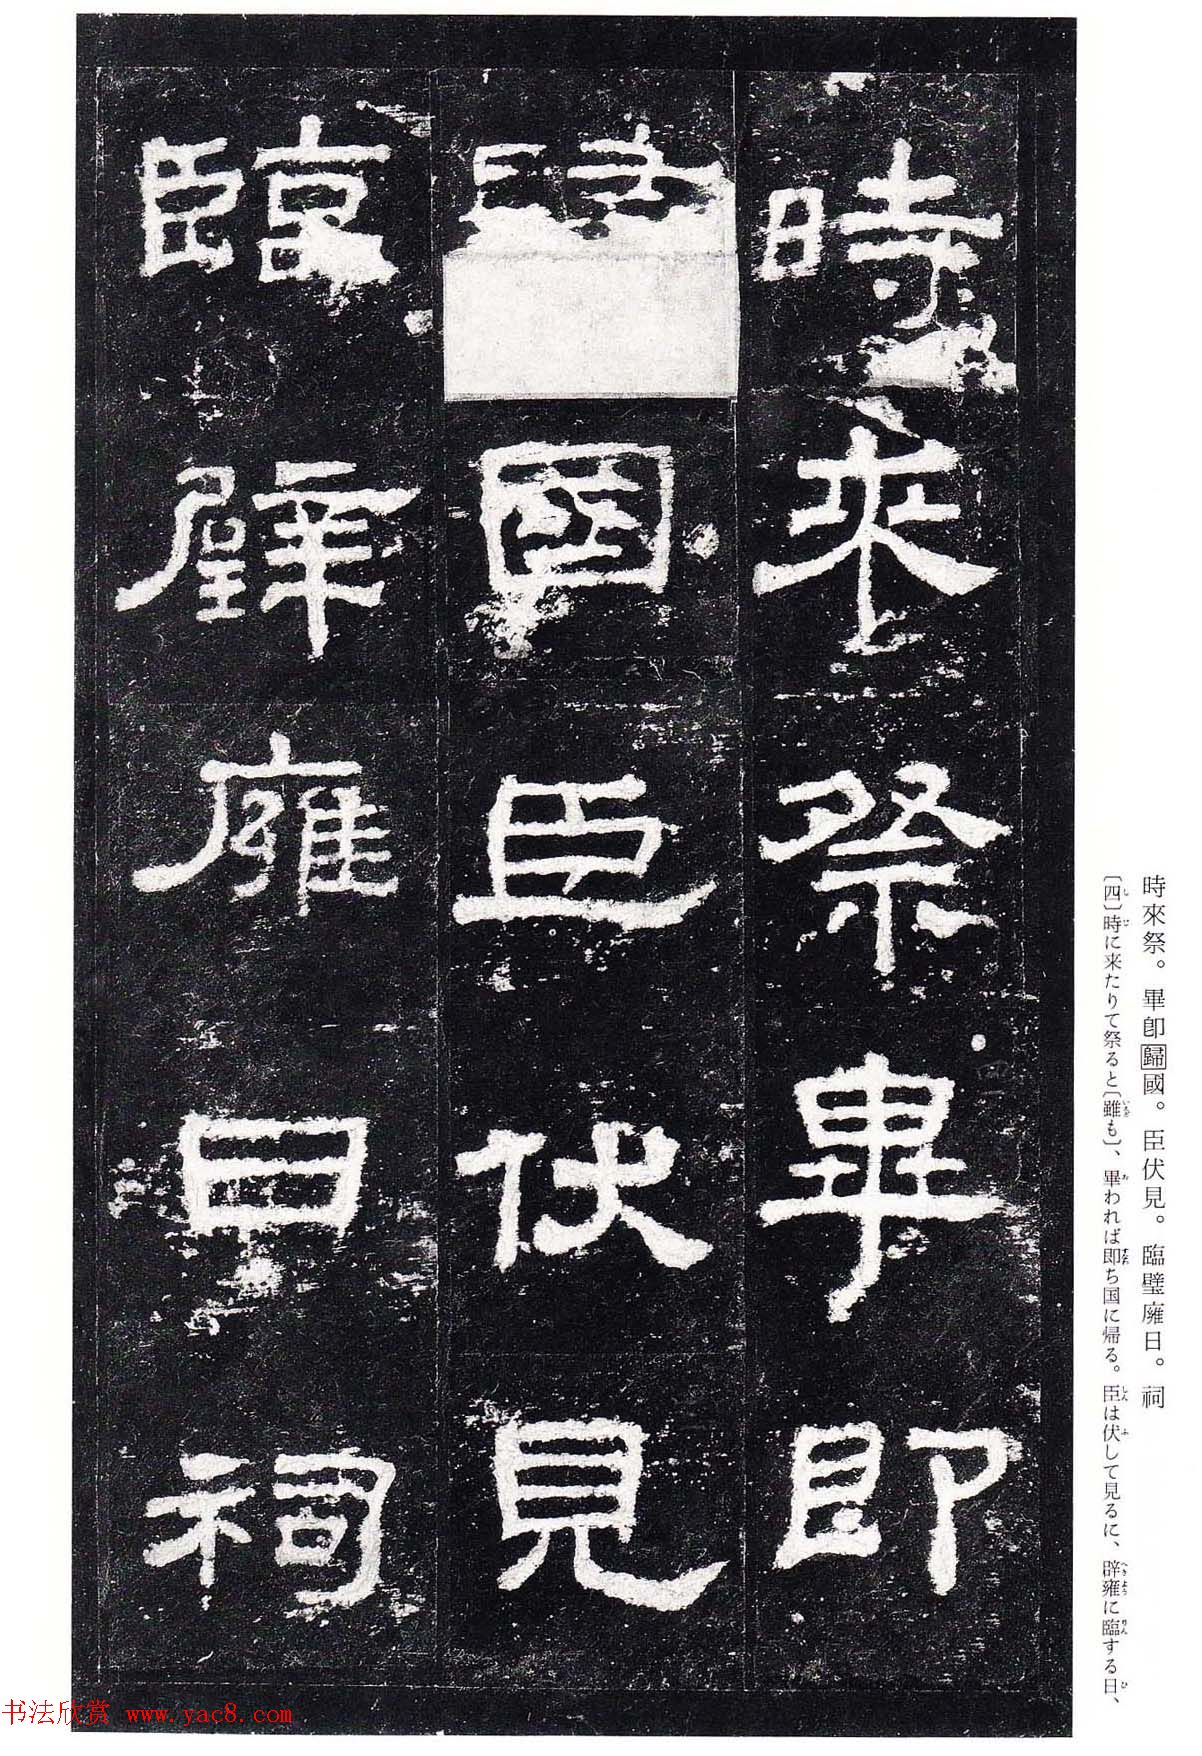 時來祭。畢卽歸國。臣伏見。臨璧廱日。祠
〔四〕時に来たりて祭ると〔雖も〕、畢わればち国に帰る。臣は伏して見るに、辟雍に臨する日、
時來祭畢即
國臣伏見
臨辟廱日祠
书法欣赏 www.yac8.com